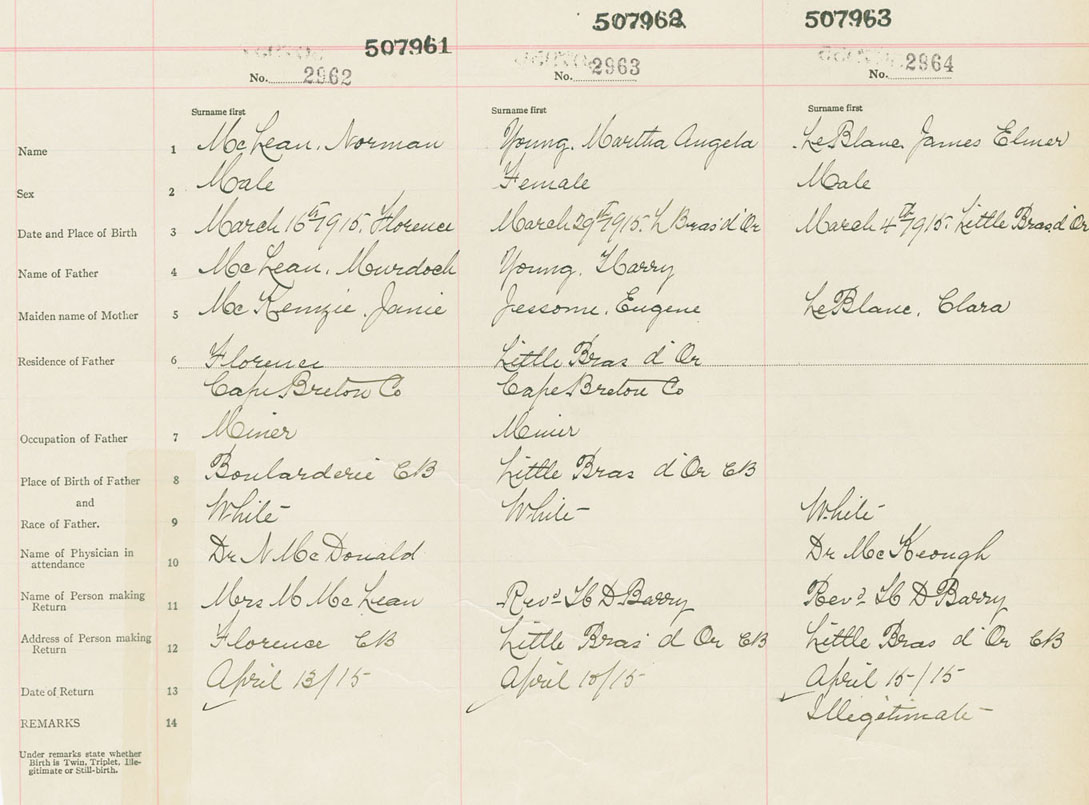 507961 507962 507963
No. 2962 No. 2963 No. 2964
Surname first Surname first Surname first
Name 1 McLean, Norman Young, Martha Angela LeBlanc, James Elmer
Sex 2 Male Female Male
Date and Place of Birth 3 March 16th 1915. Florence March 29th 1915. L Bras d'Or March 4th 1915. Little Bras d'Or
Name of Father 4 McLean, Murdoch Young, Harry
Maiden name of Mother 5 McKenzie, Janie Jessome, Eugene LeBlanc, Clara
Residence of Father 6 Florence Little Bras d'Or
Cape Breton Co Cape Breton Co
Occupation of Father 7 Miner Miner
Place of Birth of Father 8 Boularderie CB Little Bras d'Or CB
and
Race of Father. 9 White White White
Name of Physician in
attendance 10 Dr N McDonald Dr McKeough
Name of Person making
Return 11 Mrs M McLean Revd H D Barry Revd H D Barry
Address of Person making
Return 12 Florence CB Little Bras d'Or CB Little Bras d'Or CB
Date of Return 13 April 13/15 April 15/15 April 15/15
REMARKS 14 Illegitimate
Under remarks state whether
Birth is Twin, Triplet, Ille-
gitimate or Still-birth.